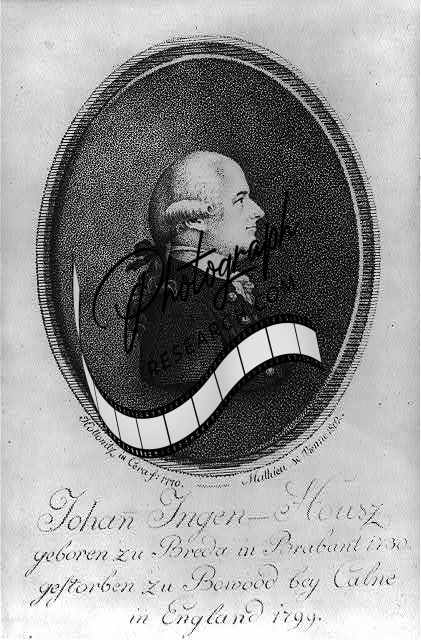 Photograph
RESEARCH.COM
Johañ Ingen-Housz
geboren zu Breda in Brabant 1730.
gestorben zu Bowood bey Calne
in England 1799.